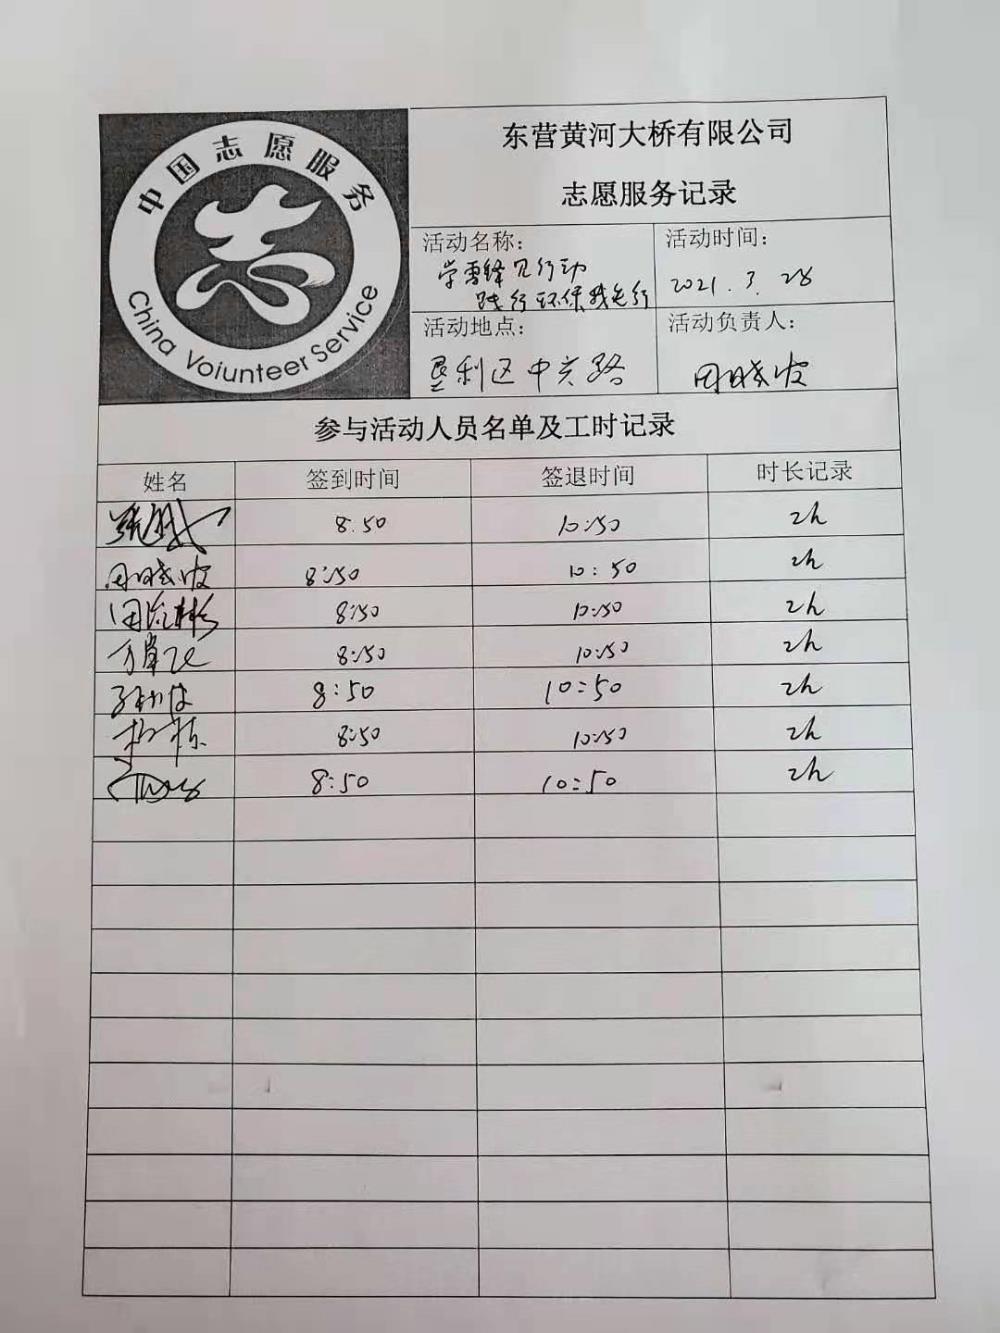 中国志愿服务
China Voiunteer Service
东营黄河大桥有限公司
志愿服务记录
活动名称：
学雷锋见行动
践行环保我先行
活动时间：
2021.3.28
活动地点：
垦利区中兴路
活动负责人：
周晓波
参与活动人员名单及工时记录
姓名 签到时间 签退时间 时长记录
8.50 10:50 2h
周晓波 8:50 10:50 2h
8:50 10:50 2h
8:50 10:50 2h
8:50 10:50 2h
8:50 10:50 2h
8:50 10:50 2h